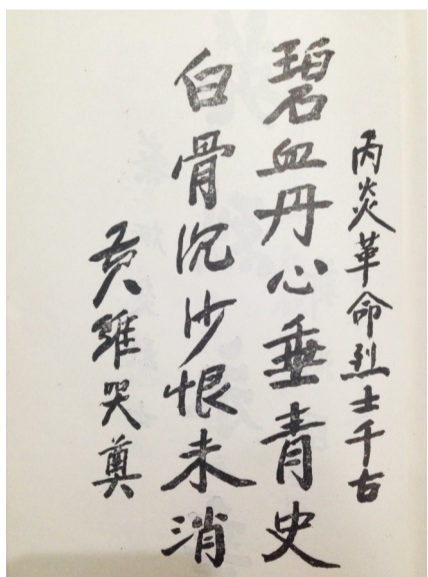 丙炎革命烈士千古
碧血丹心垂青史
白骨沉沙恨未消
黄维哭奠